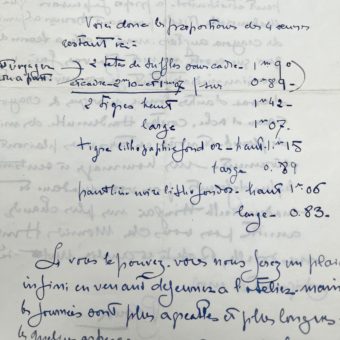 Voici donc les proportions des 4 œuvres
restant ici:
2 têtes de buffles sans cadre. 1m90
avec cadre 2m10 et 1m07 / sur 0.89.
à part.
2 tigres haut 1m42-
large 1m07.
tigre lithographie fond or - haut. 1m15
large 0.89
panthère noire litho fond or. haut 1m06
large - 0.83.
Si vous le pouvez. vous nous ferez un plaisir
infini en venant déjeuner à l'atelier. main
les journées sont plus agréables et plus longues.